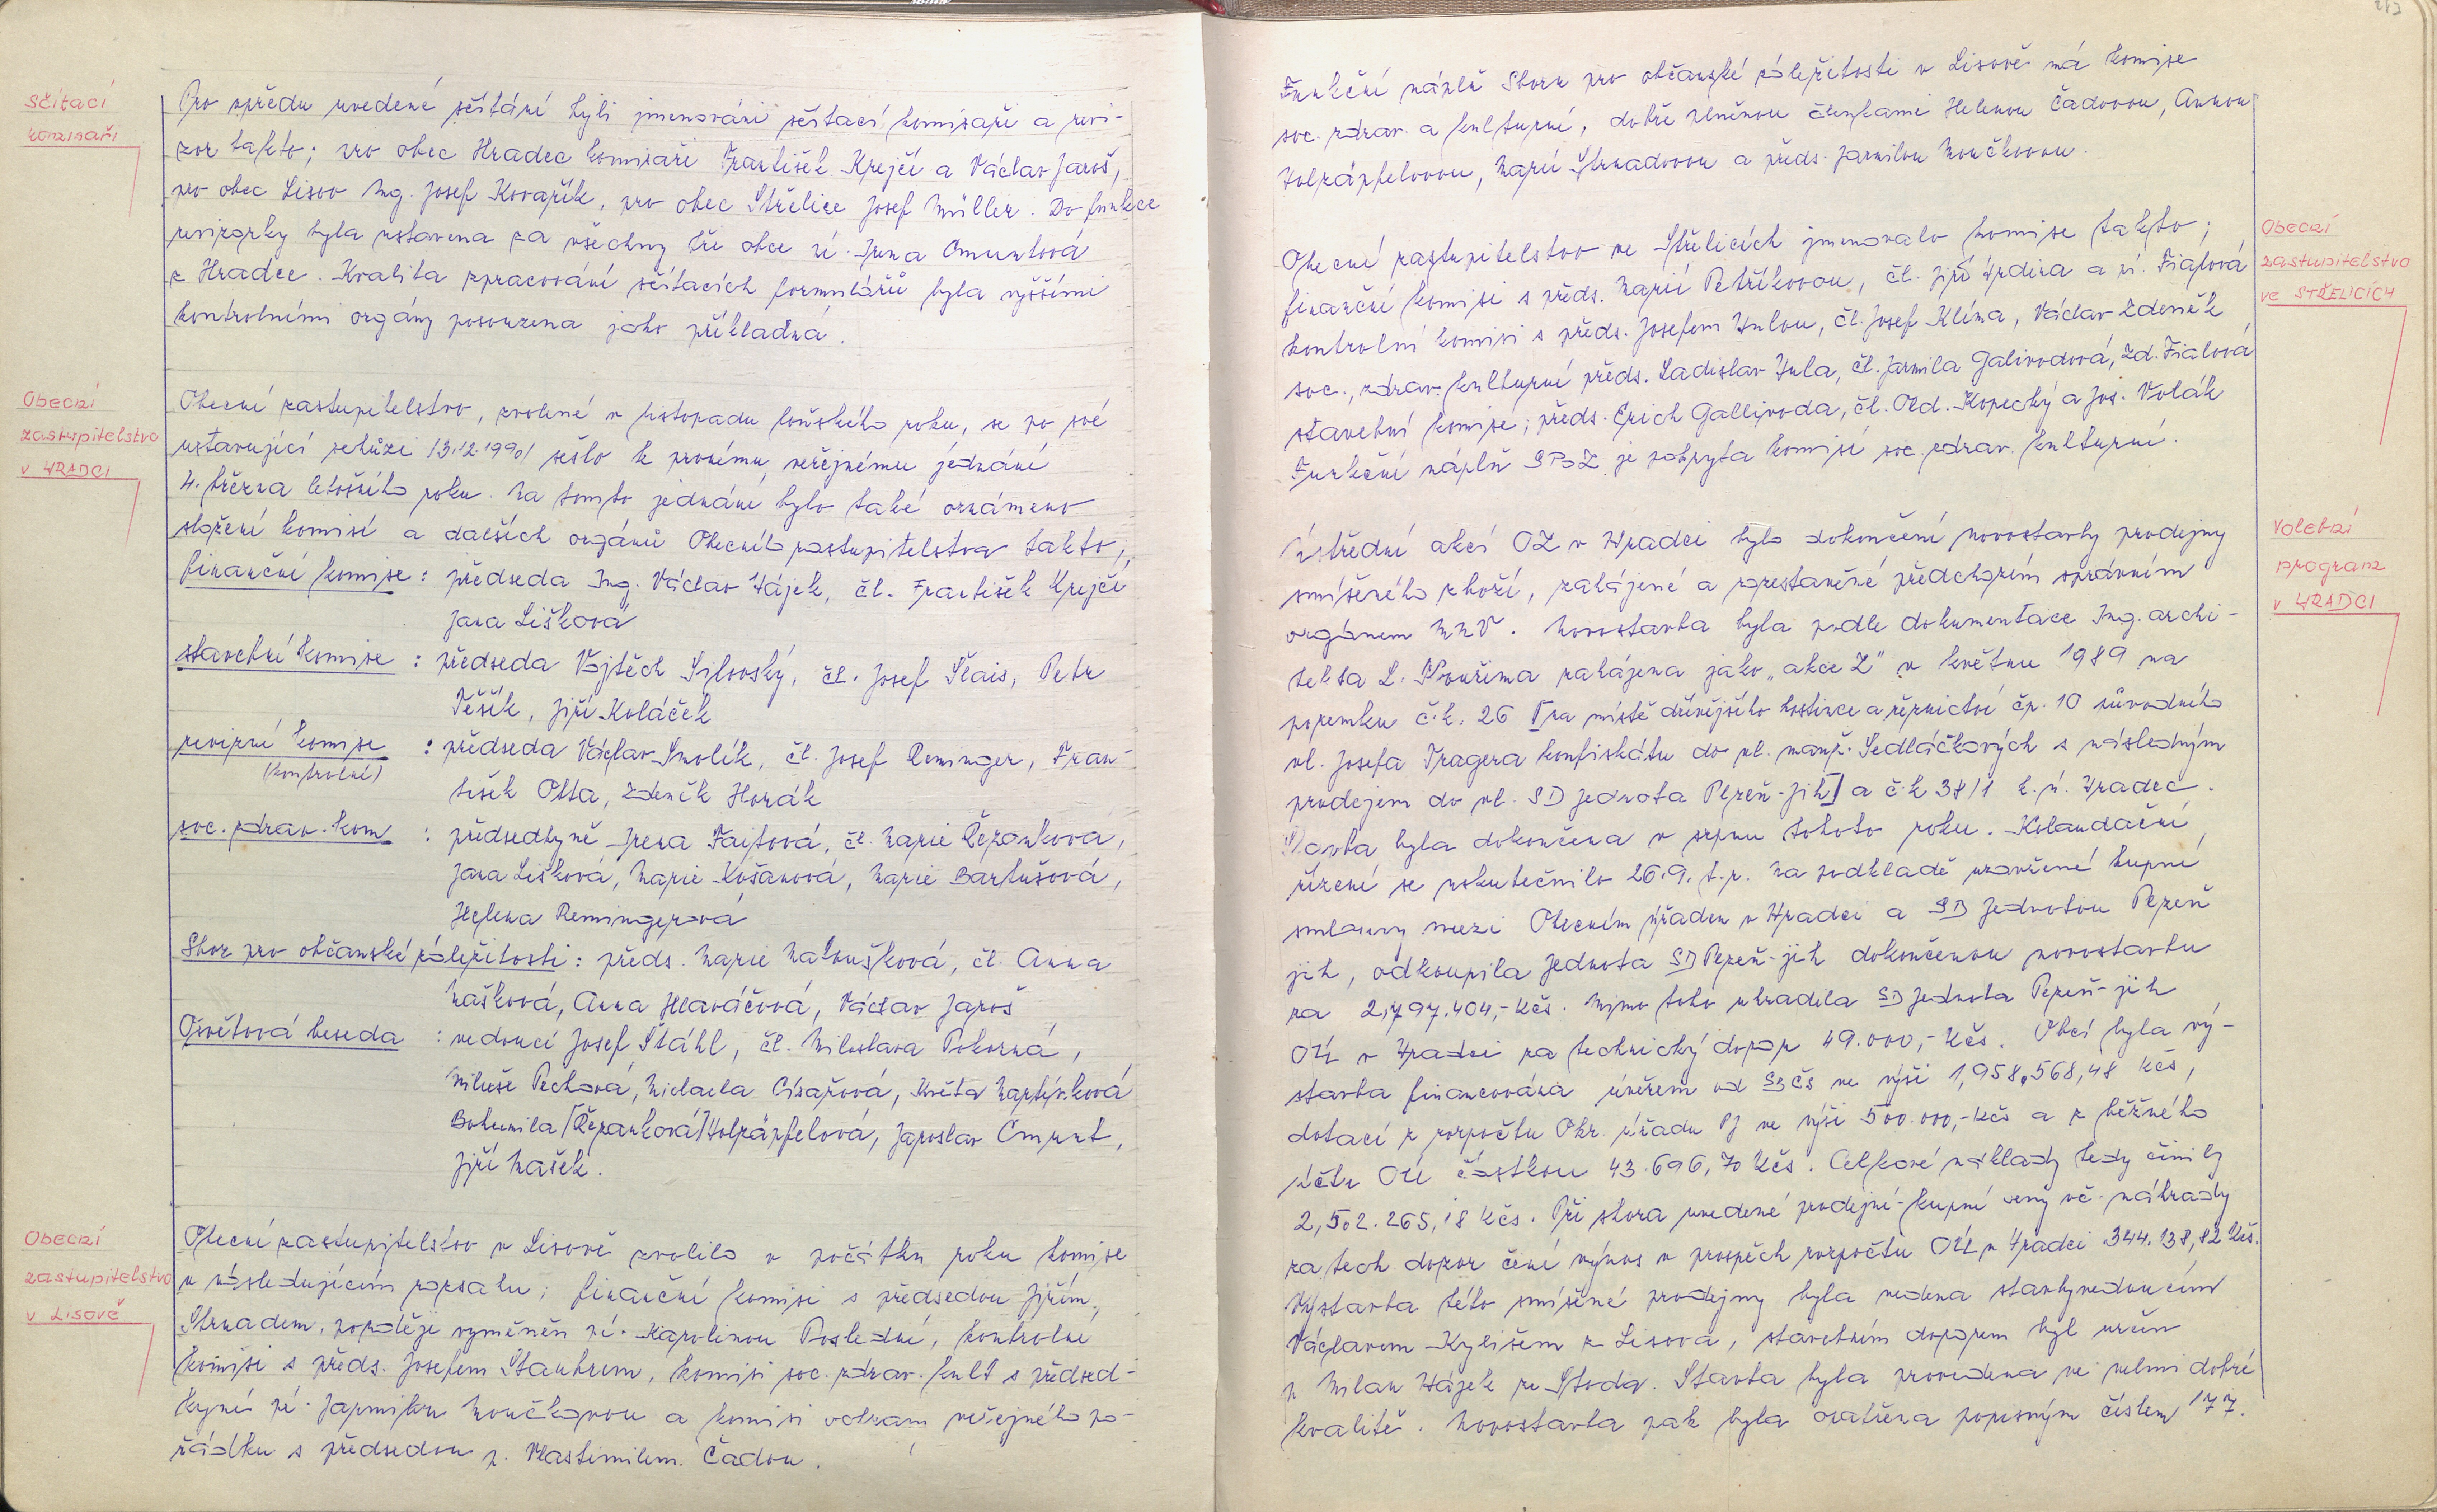 Sčítací
komisaři
Pro vpředu uvedené sčítání byli jmenováni sčítací komisaři a revi-
zor takto; pro obec Hradec komisaři František Krejčí a Václav Jaroš,
pro obec Lisov Ing. Josef Kovařík, pro obec Střelice Josef Müller. Do funkce
revizorky byla ustavena za všechny tři obce pí. Irena Cmuntová
z Hradce. Kvalita zpracování sčítacích formulářů byla vyššími
kontrolními orgány posouzena jako příkladná.
Obecní
zastupitelstvo
v HRADCI
Obecní zastupitelstvo, zvolené v listopadu loňského roku, se po své
ustavující schůzi 13.12.1990 sešlo k prvnímu veřejnému jednání
4. března letošního roku. Na tomto jednání bylo také oznámeno
složení komisí a dalších orgánů Obecního zastupitelstva takto;
finanční komise: předseda Ing. Václav Hájek, čl. František Krejčí
Jana Lišková
stavební komise: předseda Vojtěch Sylovský, čl. Josef Šlais, Petr
Těšík, Jiří Koláček
revizní komise: předseda Václav Smolík, čl. Josef Reminger, Fran-
(kontrolní)
tišek Otta, Zdeněk Horák
soc. zdrav. kom: předsedkyně Irena Fajtová, čl. Marie Řezanková,
Jana Lišková, Marie Košanová, Marie Bartušová,
Helena Remingerová
Sbor pro občanské záležitosti: předs. Marie Matoušková, čl. Anna
Mašková, Anna Hlaváčová, Václav Jaroš
Osvětová beseda: vedoucí Josef Štáhl, čl. Miloslava Pokorná,
Miluše Pechová, Michaela Císařová, Květa Martínková
Bohumila [Řezanková] Holzäpfelová, Jaroslav Cmunt,
Jiří Mašek.
Obecní
zastupitelstvo
v Lisově
Obecní zastupitelstvo v Lisově zvolilo v počátku roku komise
v následujícím rozsahu; finanční komisi s předsedou Jiřím
Strnadem, později vyměněn pí. Karolinou Poslední, kontrolní
komisi s předs. Josefem Štanhrem, komisi soc. zdrav. kult s předsed-
kyní pí. Jarmilou Moučkovou a komisi ochrany veřejného po-
řádku s předsedou p. Vlastimilem Čadou.
Funkční náplň Sboru pro občanské záležitosti v Lisově má komise
soc. zdrav. a kulturní, dobře plněnou členkami Helenou Čadovou, Annou
Holzäpfelovou, Marií Strnadovou a předs. Jarmilou Moučkovou.
Obecní
zastupitelstvo
ve STŘELICÍCH
Obecní zastupitelstvo ve Střelicích jmenovalo komise takto;
finanční komisi s předs. Marií Petříkovou, čl. Jiří Hrdina a pí. Fialová
kontrolní komisi s předs. Josefem Hulou, čl. Josef Klíma, Václav Zdeněk
soc., zdrav. kulturní předs. Ladislav Hula, čl. Jarmila Galivodová, Zd. Fialová
stavební komise; předs. Erich Gallivoda, čl. Old. Kopecký a Jos. Volák
Funkční náplň SPOZ je pokryta komisí soc. zdrav. kulturní.
Volební
program
v HRADCI
Ústřední akcí OZ v Hradci bylo dokončení novostavby prodejny
smíšeného zboží, zahájené a rozestavěné předchozím správním
orgánem MNV. Novostavba byla podle dokumentace Ing. archi-
tekta L. Kouřima zahájena jako "akce Z" v květnu 1989 na
pozemku č.k. 26 [na místě dřívějšího hostince a řeznictví čp. 10 původního
vl. Josefa Tragera konfiskátu do vl. manž. Sedláčkových s následným
prodejem do vl. SD Jednota Plzeň-jih] a č.k 38/1 k.ú. Hradec.
Stavba byla dokončena v srpnu tohoto roku. Kolaudační
řízení se uskutečnilo 26.9. t.r. Na podkladě uzavřené kupní
smlouvy mezi Obecním úřadem v Hradci a SD Jednotou Plzeň
jih, odkoupila Jednota SD Plzeň-jih dokončenou novostavbu
za 2,797.404,- Kčs. Mimo toho uhradila SD Jednota Plzeň-jih
OÚ v Hradci za technický dozor 49.000,- Kčs. Obcí byla vý-
stavba financována úvěrem od SBČS ve výši 1,958.568,48 Kčs,
dotací z rozpočtu Okr. úřadu PJ ve výši 500.000,- Kčs a z běžného
účtu OÚ částkou 43.696,70 Kčs. Celkové náklady tedy činily
2,502.265,18 Kčs. Při shora uvedené prodejní-kupní ceny vč. náhrady
za tech dozor činí výnos v prospěch rozpočtu OÚ v Hradci 344.138,82 Kčs.
Výstavba této smíšené prodejny byla vedena stavbyvedoucím
Václavem Kylišem z Lisova, stavebním dozorem byl určen
p. Milan Hájek ze Stoda. Stavba byla provedena ve velmi dobré
kvalitě. Novostavba pak byla opatřena popisným číslem 177.